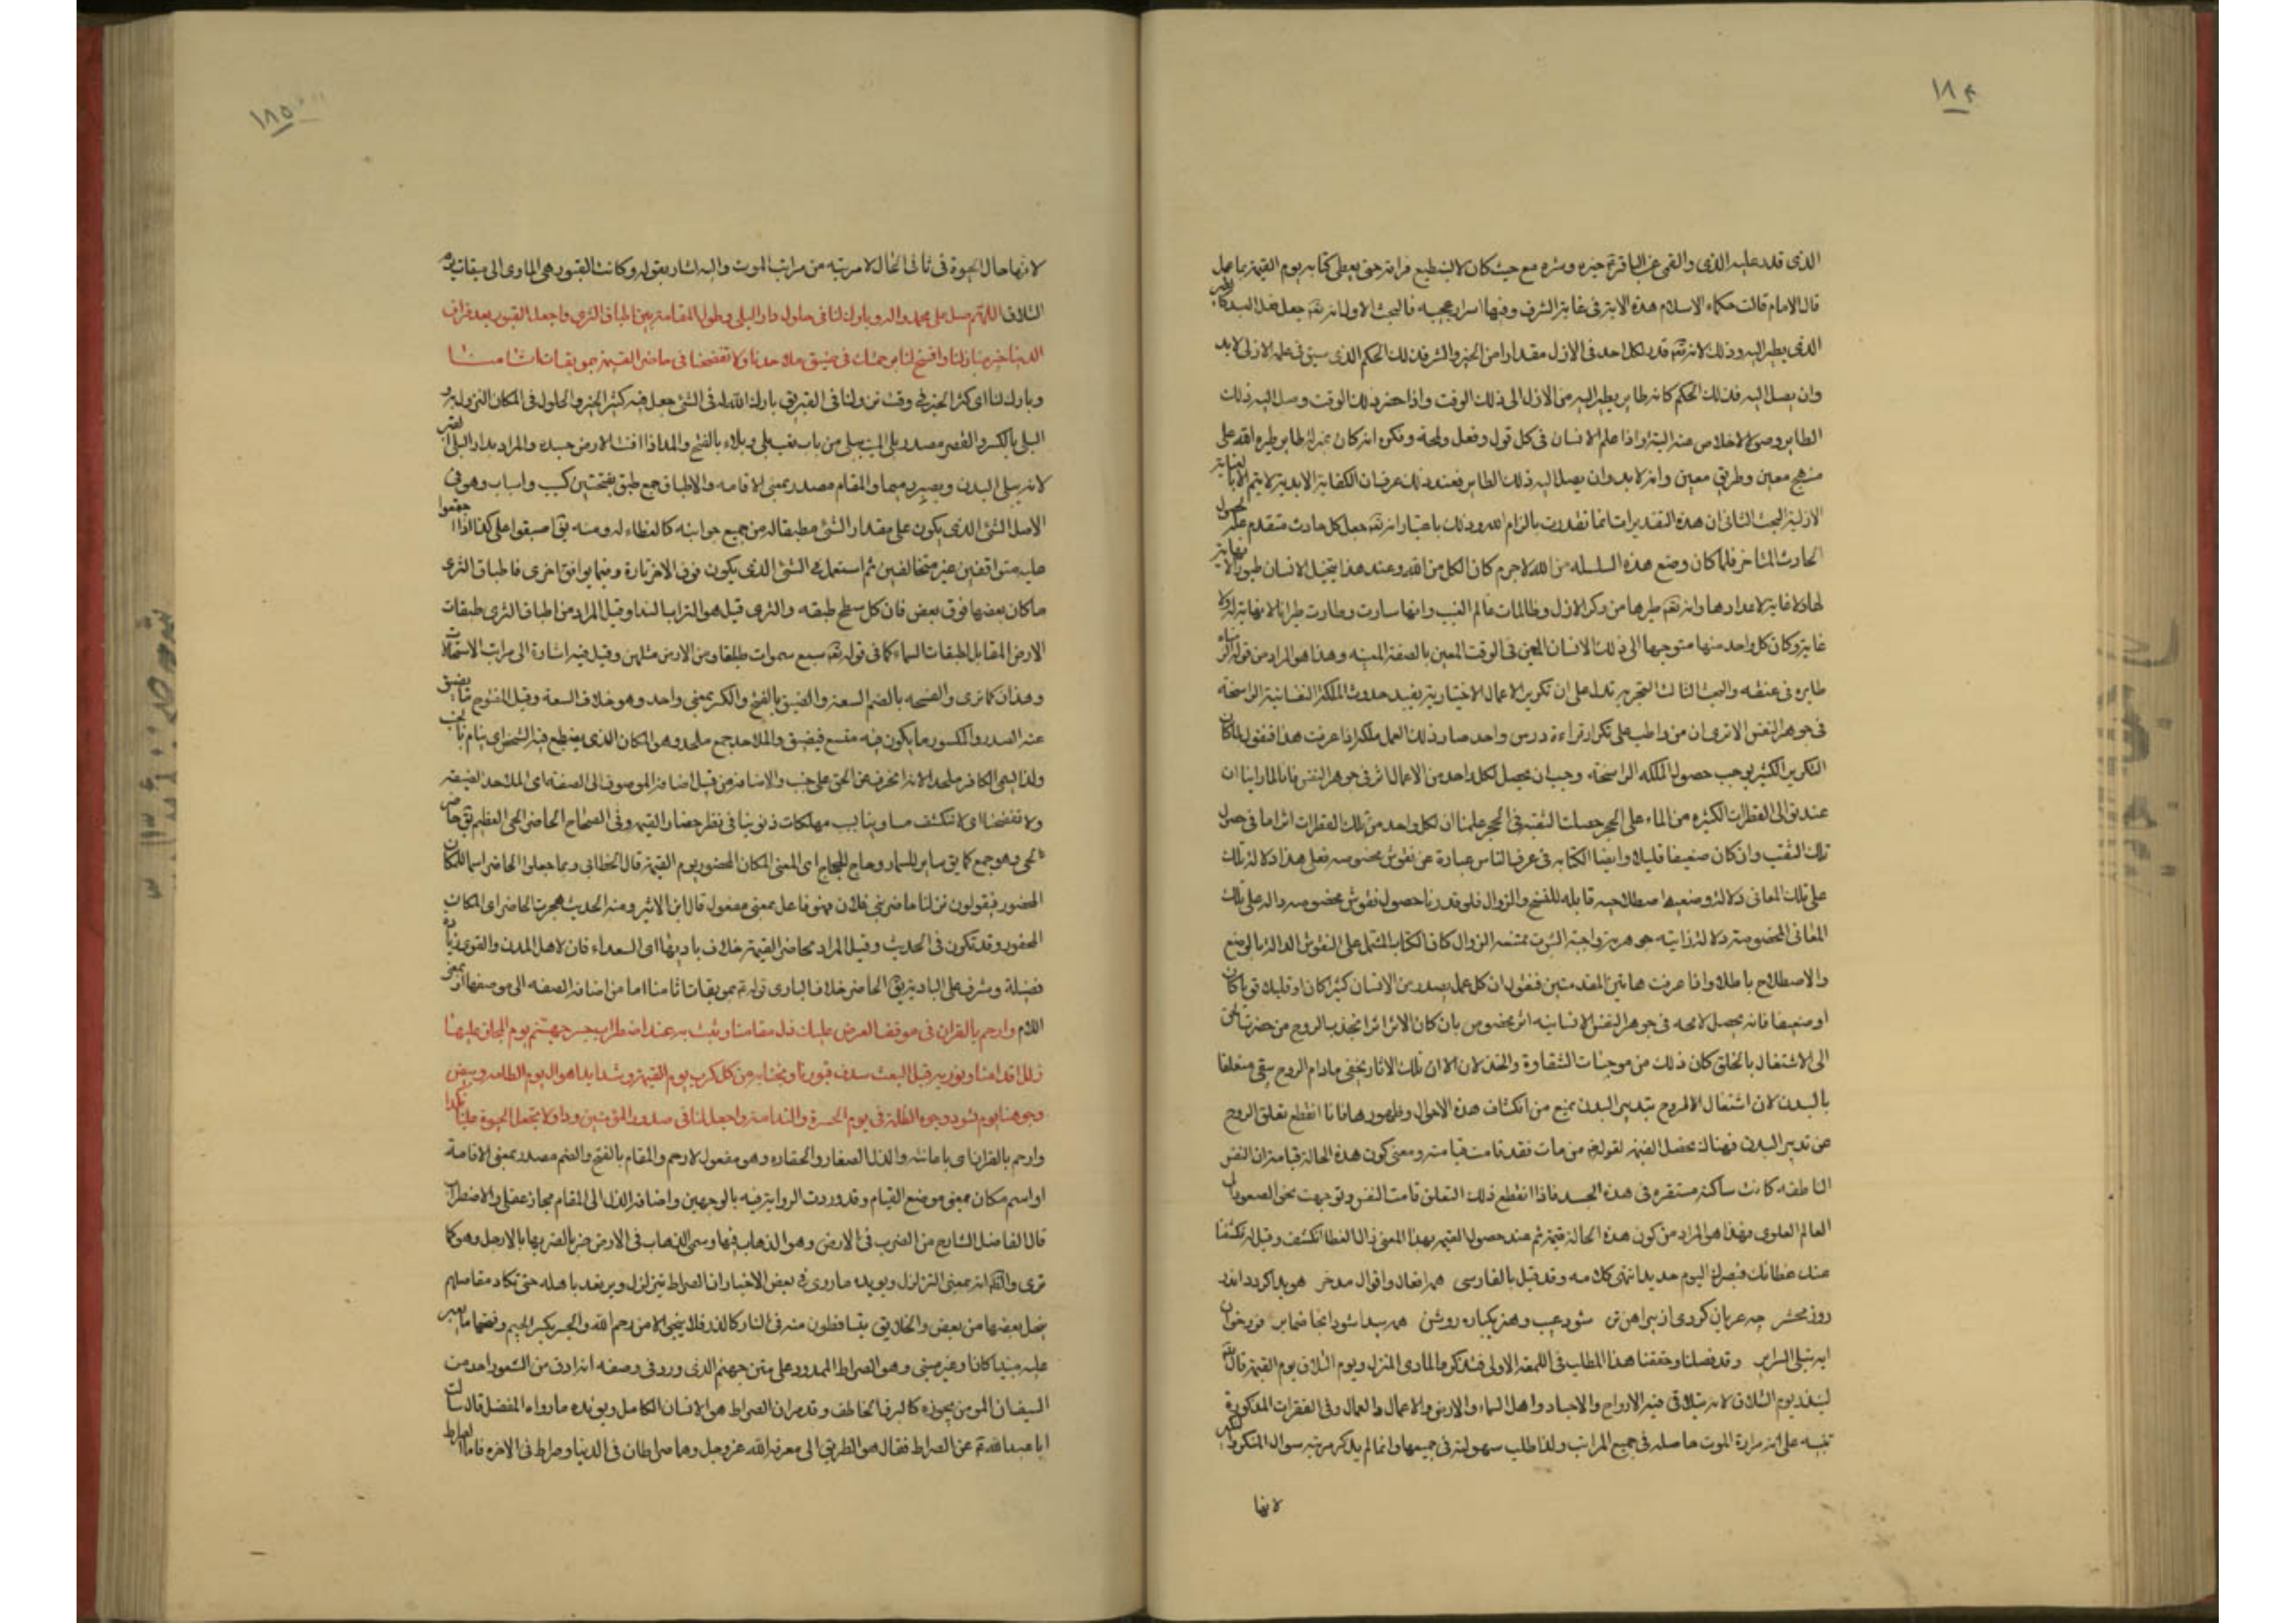 ١٨٤
الذى قدد عليه الذى والقمى عن الباقر ع خيره وشره معه حيث كان لا يستطيع فراقه حتى يعطى كتابه يوم القيمة بما عمل
قال الامام قالت حكماء الاسلام هذه الاية فى غاية الشرف وفيها اسرار عجيبه فالبحث الاول انه تعه جعل فعل العبد كالطير
الذى يطير اليه وذلك لانه تعه قدر لكل احد فى الازل مقدارا من الخير والشر فذلك الحكم الذى سبق فى علمه الازلى لابد
وان يصل اليه فذلك الحكم كانه طاير يطير اليه من الازل الى ذلك الوقت واذا حضر ذلك الوقت وصل اليه ذلك
الطاير وصولا لا خلاص عنه البتة واذا علم الانسان فى كل قول وفعل ولمحة وفكره انه كان بمنزلة طاير طيره الله على
منهج معين وطريق معين وانه لابد وان يصل اليه ذلك الطاير فعند ذلك عرف ان الكفاية الابدية لا يتم الا بالعناية
الازلية البحث الثانى ان هذه التقديرات انما تقدرت بالزام الله وذلك باعتبار انه تعه جعل كل حادث متقدم علة لحصول
الحادث المتاخر فلما كان وضع هذه السلسله من الله لاجرم كان الكل من الله وعند هذا يتخيل الانسان طيورا لا نهاية
لها ولا غاية لاعدادها وانه تعه طيرها من وكر الازل وظلمات عالم الغيب وانها سارت وطارت طيرانا لا نهاية له ولا
غاية وكان كل واحد منها متوجها الى ذلك الانسان المعين فى الوقت المعين بالصفة المعينه وهذا هو المراد من قوله الزمناه
طايره فى عنقه والبحث الثالث التجربه تدل على ان تكرير الاعمال الاختيارية يفيد حدوث الملكة النفسانية الراسخة
فى جوهر النفس الا ترى ان من واظب على تكرار قراءة درس واحد صار ذلك العمل ملكة اذا عرفت هذا فنقول لما كان
التكرير الكثير يوجب حصول الملكه الراسخة وجب ان يحصل لكل واحد من الاعمال اثر فى جوهر النفس فانا لما راينا ان
عند توالى القطرات الكثيره من الماء على الحجر حصلت الثقبة فى الحجر علمنا ان لكل واحد من تلك القطرات اثرا ما فى حصول
تلك الثقب وان كان ضعيفا قليلا وايضا الكتابه فى عرف الناس عبارة عن نقوش مخصوصه فعلى هذا دلالة تلك
على تلك المعانى دلالة وضعيه اصطلاحيه قابله للنسخ والزوال فلو قدرنا حصول نقوش مخصوصه داله على تلك
المعانى المخصوصة دلالة ذاتيه جوهرية واجبة الثبوت ممتنعه الزوال كان الكتاب المشتمل على النقوش الدالة بالوضع
والاصطلاح باطلا واذا عرفت هاتين المقدمتين فنقول ان كل عمل يصدر من الانسان كثيرا كان او قليلا قويا كان
او ضعيفا فانه يحصل لامحه فى جوهر النفس الانسانيه اثر مخصوص بان كان الاثر اثرا لجذب الروح من حضرت الحق
الى الاشتغال بالخلق كان ذلك من موجبات الشقاوة والخذلان الا ان تلك الاثار يخفى مادام الروح يبقى متعلقا
بالبدن لان اشتغال الروح بتدبير البدن يمنع من انكشاف هذه الاحوال وظهورها فاذا انقطع تعلق الروح
عن تدبير البدن فهناك تحصل القيمه لقوله من مات فقد قامت قيامته ومعنى كون هذه الحالة قيامة ان النفس
الناطقه كانت ساكنة مستقره فى هذه الجسد فاذا انقطع ذلك التعلق قامت النفس وتوجهت نحو الصعود الى
العالم العلوى فهذا هو المراد من كون هذه الحالة قيمة ثم عند حصول القيمه بهذا المعنى زال الغطا انكشف وقيل له فكشفنا
عنك غطائك فبصرك اليوم حديد انتهى كلامه وقد قيل بالفارسى همه افعال واقوال مدخر هويدا كردد اندر
روز محشر چه عريان كردى از پيراهن تن شود عيب وهنر يكباره روشن همه پيدا شود انجا ضماير فرو خوان
ايه تبلى السراير وقد فصلنا وحققنا هذا المطلب فى اللمعه الاولى فتذكر ما الماوى المنزل ويوم التلاق يوم القيمة قال الله
لينذر يوم التلاق لانه يتلاقى فيه الارواح والاجساد واهل السماء والارض والاعمال والعمال وفى الفقرات المذكورة
تنبيه على ان مرارة الموت حاصله فى جميع المراتب ولذا طلب سهولته فى جميعها وانما لم يذكر مرتبه سوال المنكر ونكير
لانها
١٨٥
لانها حال الحيوة فى ثانى الحال لا مرتبه من مراتب الموت واليه اشار بقوله وكانت القبور هى الماوى الى ميقات يوم
التلاق اللهم صل على محمد واله وبارك لنا فى حلول دار البلى وطول المقامة بين اطباق الثرى واجعل القبور بعد فراق
الدنيا خير منازلنا وافسح لنا برحمتك فى ضيق ملاحدنا ولا تفضحنا فى حاضر القيمة بموبقات اثامنا
وبارك لنا اى كثر الخير فى وقت نزولنا فى القبر يق بارك الله له فى الشئ جعل فيه كثير الخير والحلول فى المكان النزول به و
البلى بالكسر والقصر مصدر بلى الميت يبلى من باب تعب بلى وبلاء بالفتح والمد اذا افنت الارض جسده والمراد بدار البلى القبر
لانه يبلى البدن ويصير رميما والمقام مصدر بمعنى الاقامه والاطباق جمع طبق بفتحتين كسبب واسباب وهو فى
الاصل الشئ الذى يكون على مقدار الشئ مطبقا له من جميع جوانبه كالغطاء له ومنه يق اطبقوا على كذا اذا اجتمعوا
عليه متوافقين غير متخالفين ثم استعمل فى الشئ الذى يكون فوق الاخر تارة وفيما يوافق اخرى فاطباق الثرى
ما كان بعضها فوق بعض فان كل سطح طبقه والثرى قيل هو التراب الندا وقيل المراد من اطباق الثرى طبقات
الارض المقابل لطبقات السماء كما فى قوله تعه سبع سموات طباقا ومن الارض مثلهن وقيل فيه اشارة الى مراتب الاستحالات
وهذان كما ترى والفسحه بالضم السعة والضيق بالفتح والكسر بمعنى واحد وهو خلاف السعة وقيل المفتوح ما يضيق
عنه الصدر والمكسور ما يكون فيه متسع فيضيق والملاحد جمع ملحد وهو المكان الذى يضطجع فيه الشخص اى ينام بالجنب
ولذا يسمى الكافر ملحدا لانه انحرف عن الحق على جنب والاضافه من قبيل اضافة الموصوف الى الصفه اى الملاحد الضيقه
ولا تفضحنا اى لا تكشف مساوينا بسبب مهلكات ذنوبنا فى نظر حضار القيمه وفى الصحاح الحاضر الحى العظيم يق حاضر
الحى وهو جمع كما يق سامر للسمار وحاج للحجاج اى المعنى المكان المحضور يوم القيمة قال الخطابى وبما جعلوا الحاضر اسما للمكان
المحضور فيقولون نزلنا حاضر بنى فلان فهو فاعل بمعنى مفعول قال ابن الاثير ومنه الحديث هجرت الحاضر اى المكان
المحضور وقد تكون فى الحديث وقيل المراد بحاضر القيمة خلاف باديتها اى السعداء فان لاهل المدن والقرى زيادة
فضيلة وشرف على البادية يق الحاضر خلاف البادى قوله ع بموبقات اثامنا اما من اضافة الصفه الى موصفها او بمعنى
اللام وارحم بالقران فى موقف العرض عليك ذل مقامنا وثبت به عند اضطراب جسر جهنم يوم المجاز عليها
زلل اقدامنا ونور به قبل البعث سدف قبورنا ونجنا به من كل كرب يوم القيمة وشدايد اهوال يوم الطامه وبيض
وجوهنا يوم تسود وجوه الظلمة فى يوم الحسرة والندامة واجعل لنا فى صدور المؤمنين ودا ولا تجعل الحيوة علينا نكدا
وارحم بالقران اى باعانته والذل الصغار والحقاره وهو مفعول لارحم والمقام بالفتح والضم مصدر بمعنى الاقامة
او اسم مكان بمعنى موضع القيام وقد وردت الرواية فيه بالوجهين واضافه الذل الى المقام مجاز عقلى والاضطراب
قال الفاضل الشارح من الضرب فى الارض وهو الذهاب فيها وسمى الذهاب فى الارض ضربا لضربها بالارجل وهو كما
ترى والظ انه بمعنى التزلزل ويويده ما روى فى بعض الاخبار ان الصراط يتزلزل ويرتعد باهله حتى تكاد مفاصلهم
ينحل بعضها من بعض والخلايق يتساقطون منه فى النار كالذر فلا ينجى الا من رحم الله والجسر بكسر الجيم وفتحها ما يعبر
عليه مبنيا كان او غير مبنى وهو الصراط الممدود على متن جهنم الذى ورد فى وصفه انه ادق من الشعر واحد من
السيف ان المومن يجوزه كالبرق الخاطف وقد مر ان الصراط هو الانسان الكامل ويؤيده ما رواه المفضل قال سالت
ابا عبد الله ع عن الصراط فقال هو الطريق الى معرفة الله عز وجل وهما صراطان فى الدنيا وصراط فى الاخره فاما الصراط